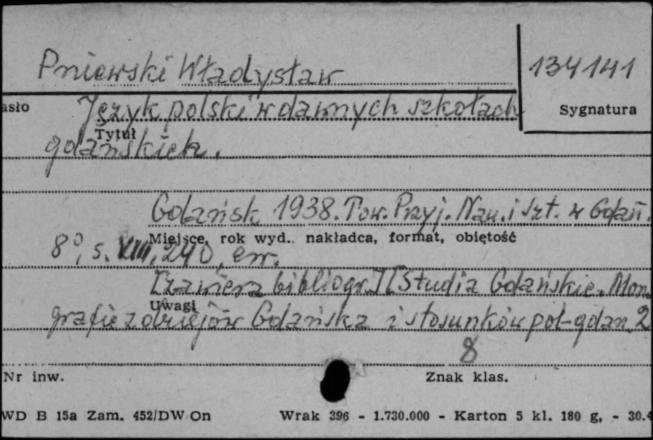 Pniewski Władysław
134141
asło
Język polski w dawnych szkołach
Sygnatura
Tytuł
gdańskich.
Gdańsk 1938. Tow. Przyj. Nau. i Szt. w Gdań.
Miejsce, rok wyd., nakładca, format, obiętość
8°, s. XIII, 240,
[Zawiera bibliogr.] [Studia Gdańskie. Mon.
Uwagi
grafie z dziejów Gdańska i stosunków pol-gdan. 2
8
Nr inw.
Znak klas.
WD B 15a Zam. 452/DW On
Wrak 396 - 1.730.000 - Karton 5 kl. 180 g, - 30.4